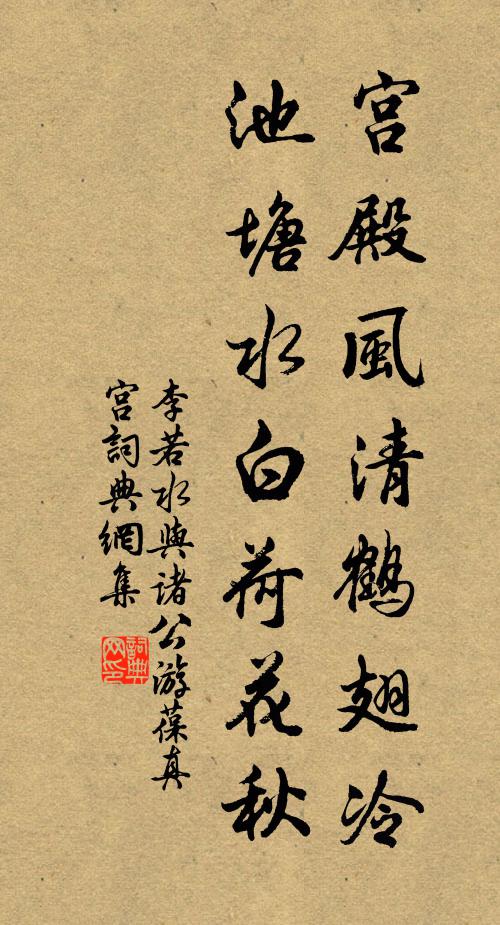 宫殿風清鶴翅冷
池塘水白荷花秋
李若水與諸公游葆真
宮詞典網集
詞典网印